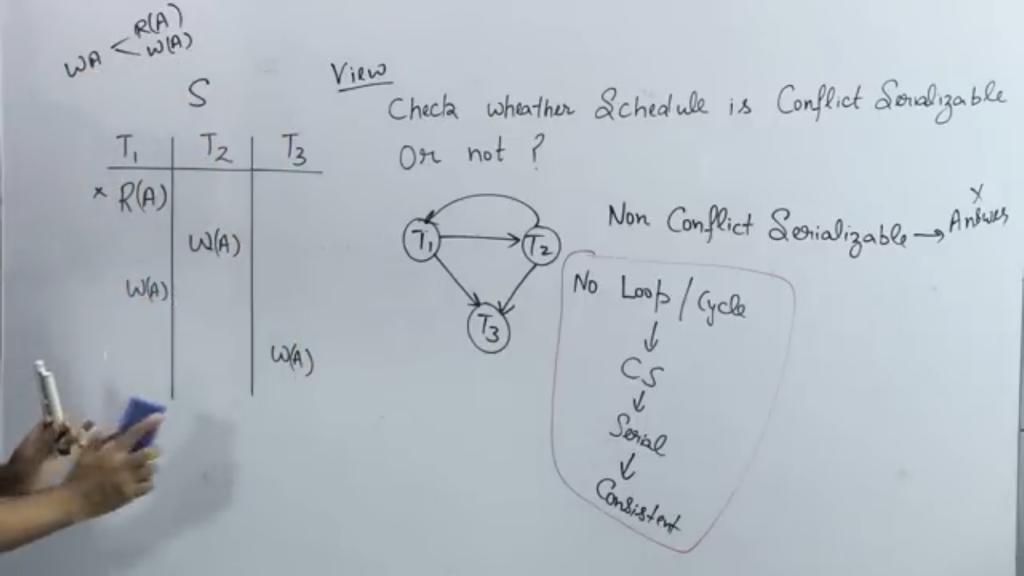 WA < R(A)
W(A)
S
T1 T2 T3
x R(A)
W(A)
W(A)
W(A)
View
Check wheather Schedule is Conflict Serializable
Or not ?
T1 T2
T3
Non Conflict Serializable → Answer
x
No Loop / Cycle
↓
CS
↓
Serial
↓
Consistent